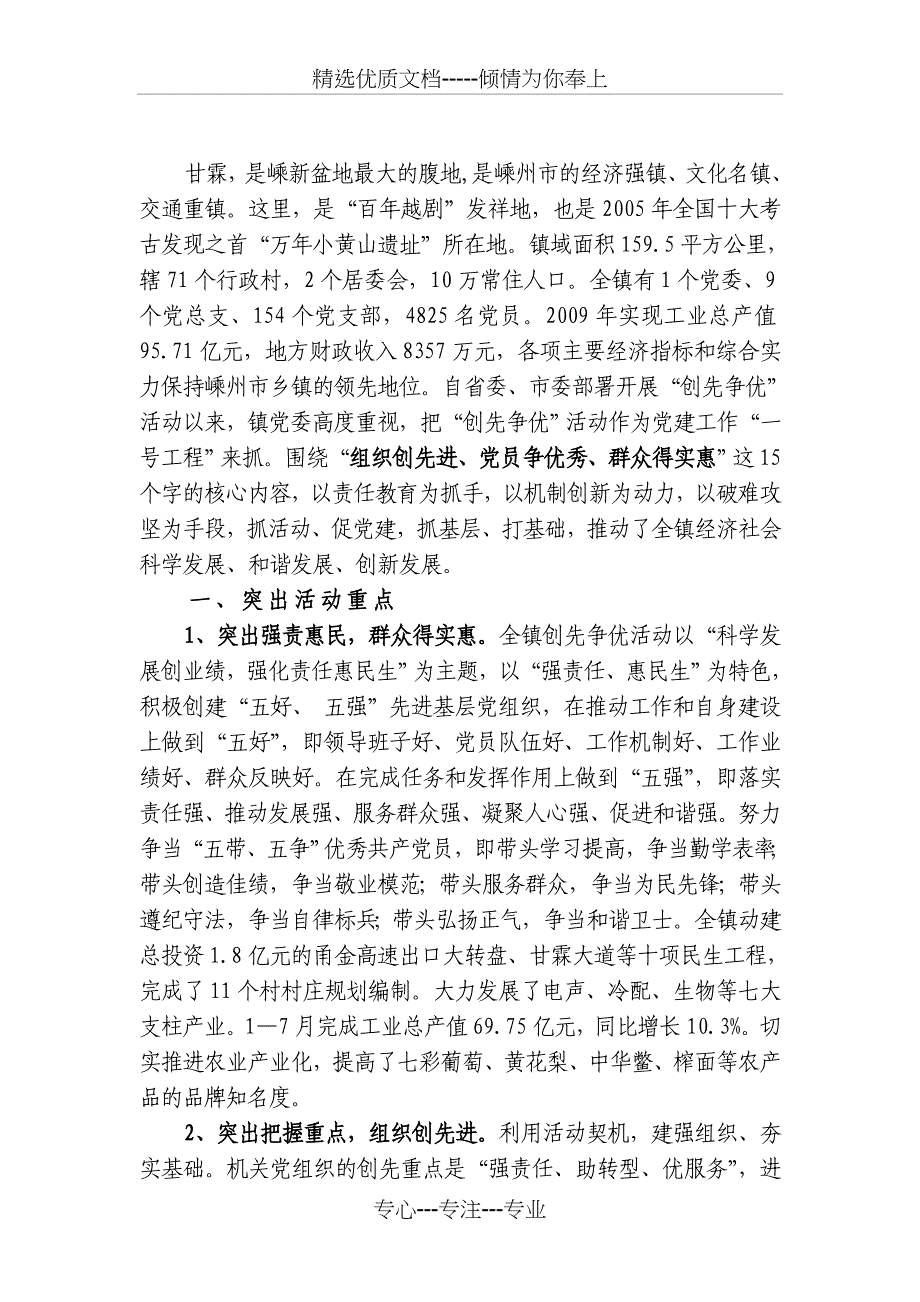 精选优质文档-----倾情为你奉上
甘霖，是嵊新盆地最大的腹地，是嵊州市的经济强镇、文化名镇、
交通重镇。这里，是“百年越剧”发祥地，也是 2005 年全国十大考
古发现之首“万年小黄山遗址”所在地。镇域面积 159.5 平方公里，
辖 71 个行政村，2 个居委会，10 万常住人口。全镇有 1 个党委、9
个党总支、154 个党支部，4825 名党员。2009 年实现工业总产值
95.71 亿元，地方财政收入 8357 万元，各项主要经济指标和综合实
力保持嵊州市乡镇的领先地位。自省委、市委部署开展“创先争优”
活动以来，镇党委高度重视，把“创先争优”活动作为党建工作“一
号工程”来抓。围绕“组织创先进、党员争优秀、群众得实惠”这 15
个字的核心内容，以责任教育为抓手，以机制创新为动力，以破难攻
坚为手段，抓活动、促党建，抓基层、打基础，推动了全镇经济社会
科学发展、和谐发展、创新发展。
一、突出活动重点
1、突出强责惠民，群众得实惠。全镇创先争优活动以“科学发
展创业绩，强化责任惠民生”为主题，以“强责任、惠民生”为特色，
积极创建“五好、 五强”先进基层党组织，在推动工作和自身建设
上做到“五好”，即领导班子好、党员队伍好、工作机制好、工作业
绩好、群众反映好。在完成任务和发挥作用上做到“五强”，即落实
责任强、推动发展强、服务群众强、凝聚人心强、促进和谐强。努力
争当“五带、五争”优秀共产党员，即带头学习提高，争当勤学表率；
带头创造佳绩，争当敬业模范；带头服务群众，争当为民先锋；带头
遵纪守法，争当自律标兵；带头弘扬正气，争当和谐卫士。全镇动建
总投资 1.8 亿元的甬金高速出口大转盘、甘霖大道等十项民生工程，
完成了 11 个村村庄规划编制。大力发展了电声、冷配、生物等七大
支柱产业。1—7 月完成工业总产值 69.75 亿元，同比增长 10.3%。切
实推进农业产业化，提高了七彩葡萄、黄花梨、中华鳖、榨面等农产
品的品牌知名度。
2、突出把握重点，组织创先进。利用活动契机，建强组织、夯
实基础。机关党组织的创先重点是“强责任、助转型、优服务”，进
专心---专注---专业